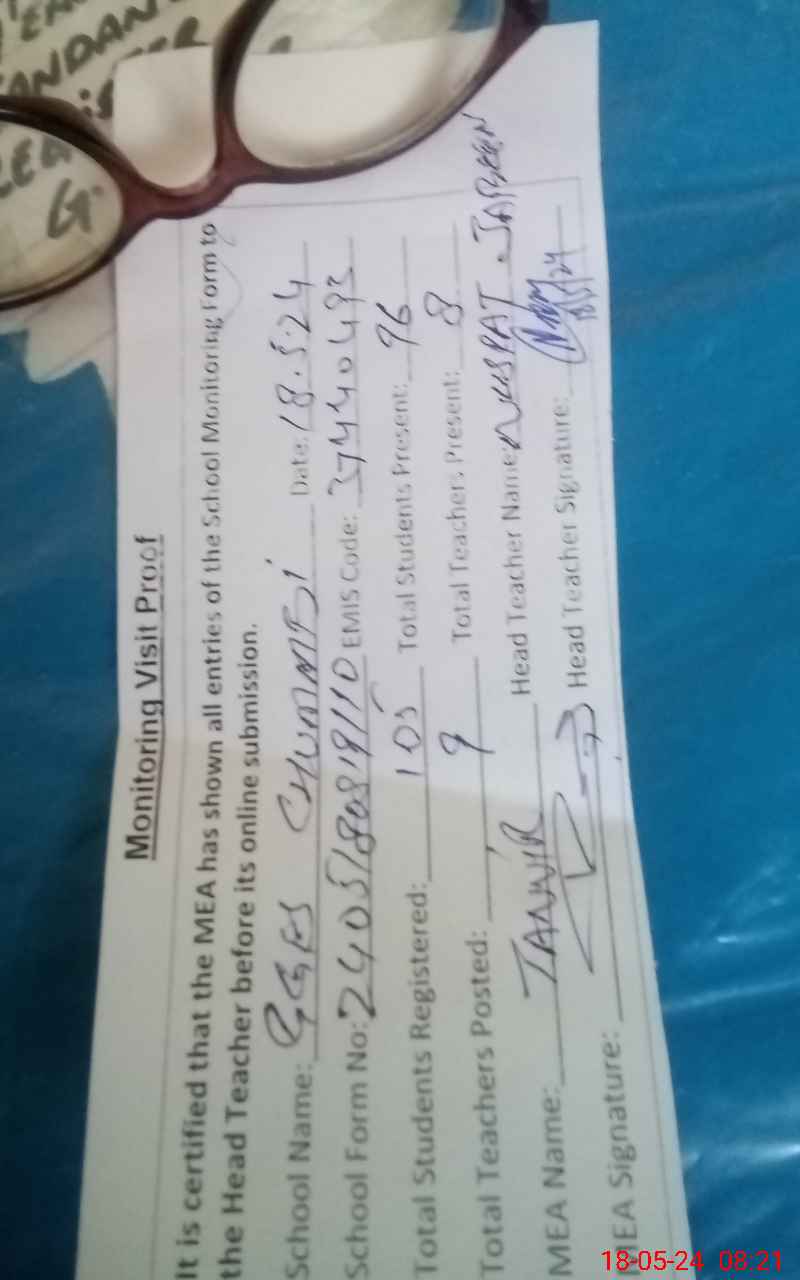 Monitoring Visit Proof
It is certified that the MEA has shown all entries of the School Monitoring Form to
the Head Teacher before its online submission.
School Name: GGES CHUMNBI Date: 18.5.24
School Form No: 2405180819110 EMIS Code: 37440493
Total Students Registered: 105 Total Students Present: 96
Total Teachers Posted: 9 Total Teachers Present: 8
MEA Name: TANWIR Head Teacher Name: NUSRAT JABEEN
MEA Signature: Head Teacher Signature: 18/5/24
18-05-24 08:21